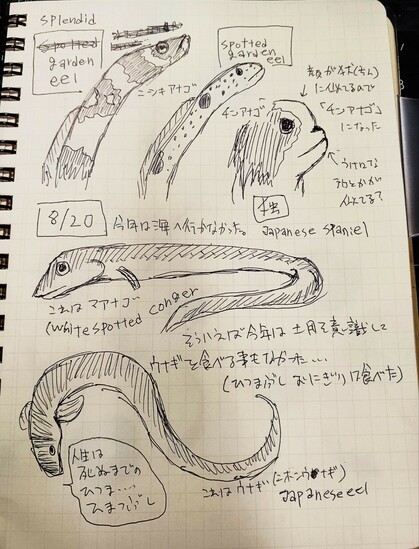 splendid
garden
eel
ニシキアナゴ
spotted
garden
eel
チンアナゴ
顔が狆(ちん)
に似てるので
「チンアナゴ」
になった
うけ口な
アゴとかが
似てる?
狆
Japanese Spaniel
8/20
今年は海へ行かなかった。
これは マアナゴ
(White spotted conger
そういえば今年は 土用を意識して
ウナギを食べる事もなかった…
(ひつまぶし おにぎりは食べた)
人生は
死ぬまでの
ひつま……
ひまつぶし
これは ウナギ (ニホンウナギ)
Japanese eel